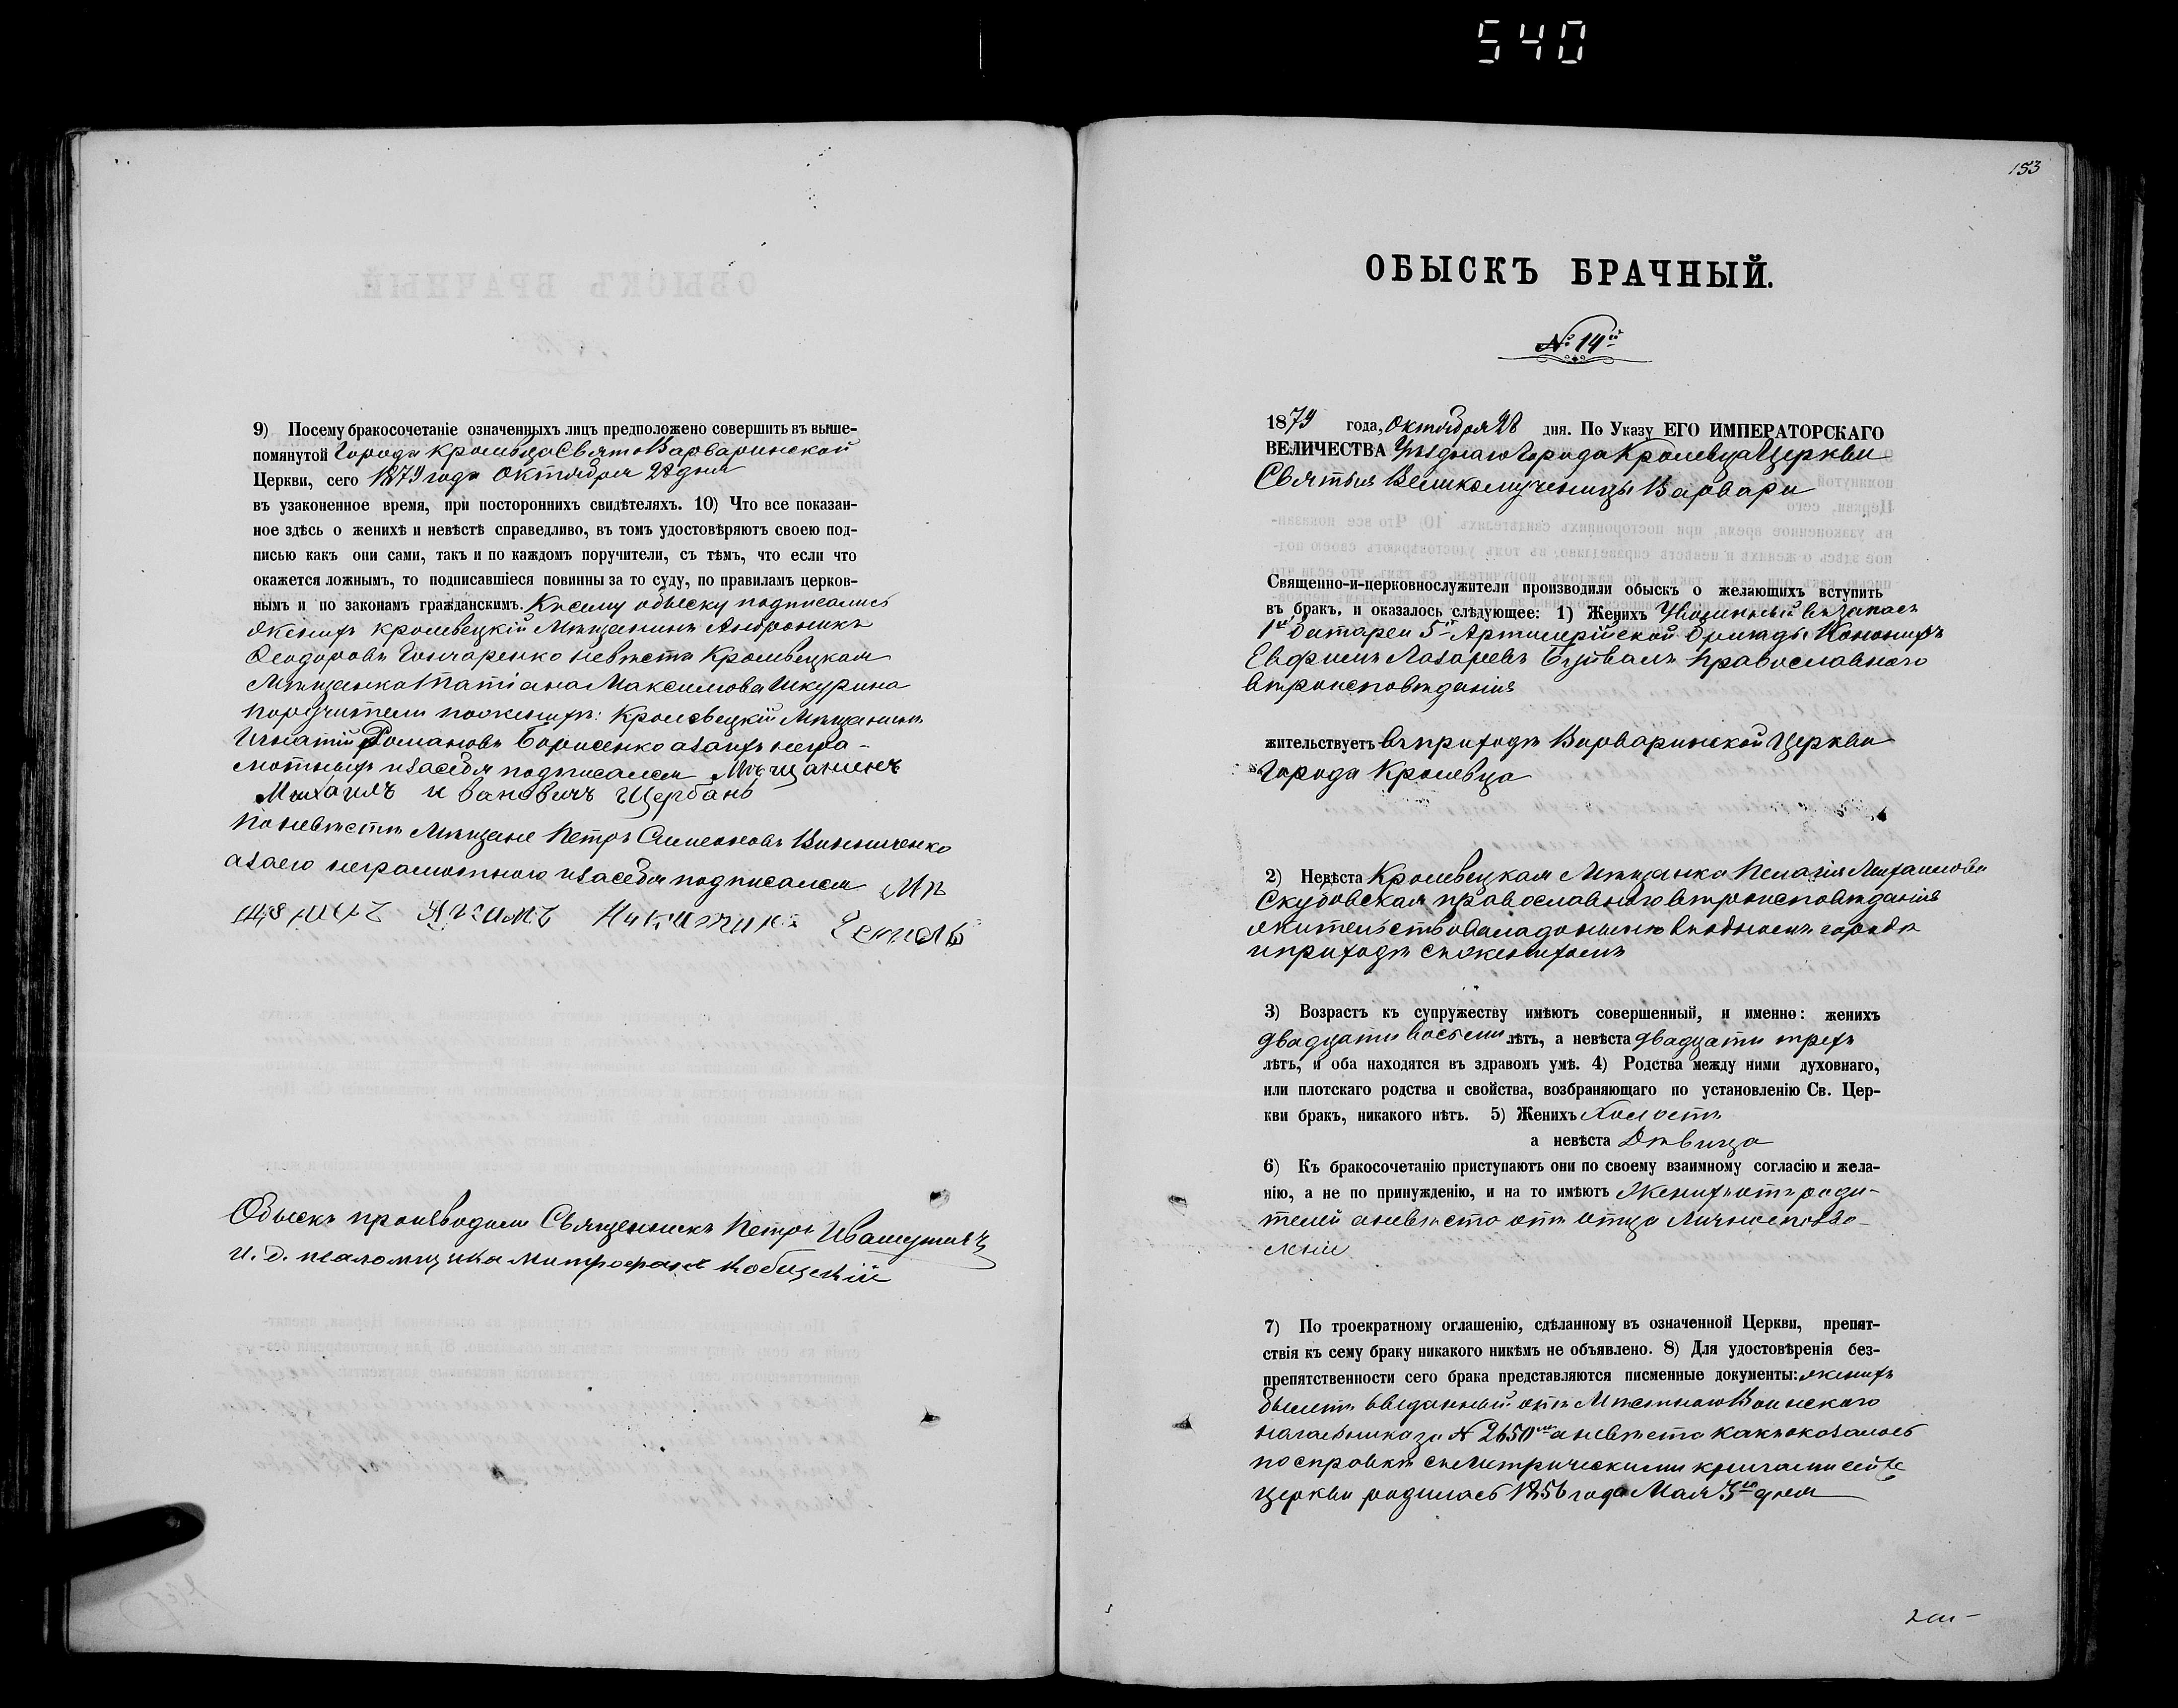 540
9) Посему бракосочетаніе означенныхъ лицъ предположено совершить въ выше-
помянутой Города Кролевца Свято Варваринской
Церкви, сего 1879 года Октября 28 дня
въ узаконенное время, при постороннихъ свидѣтеляхъ. 10) Что все показан-
ное здѣсь о женихѣ и невѣстѣ справедливо, въ томъ удостовѣряютъ своею под-
писью какъ они сами, такъ и по каждомъ поручители, съ тѣмъ, что если что
окажется ложнымъ, то подписавшіеся повинны за то суду, по правиламъ церков-
нымъ и по законамъ гражданскимъ. Къ сему обыску подписались
женихъ Кролевецкій Мѣщанинъ Андроникъ
Ѳеодоровъ Гончаренко невѣста Кролевецкая
Мѣщанка Татіана Максимова Шкурина
поручители по женихѣ: Кролевецкій Мѣщанинъ
Игнатій Романовъ Борисенко а за ихъ негра-
мотныхъ и за себя подписался Мѣщанинъ
Михаилъ Ивановичъ Щербань
По невѣстѣ Мѣщане Петръ Симеоновъ Винниченко
а за его неграмотнаго и за себя подписался Мѣ
щанинъ Акимъ
Обыскъ производили Священникъ Петръ Ивашутичъ
и. д. псаломщика Митрофанъ Кобыцкій
153
ОБЫСКЪ БРАЧНЫЙ.
№ 14й
1879 года, Октября 28 дня. По Указу ЕГО ИМПЕРАТОРСКАГО
ВЕЛИЧЕСТВА Уѣзднаго Города Кролевца Церкви
Святыя Великомученицы Варвары
Священно-и-церковнослужители производили обыскъ о желающихъ вступить
въ бракъ, и оказалось слѣдующее: 1) Женихъ Уволенный въ запасъ
1й батареи 5й Артилерійской бригады Канониръ
Евфимъ Лазаревъ православнаго
вѣроисповѣданія
жительствуетъ въ приходѣ Варваринской Церкви
Города Кролевца
2) Невѣста Кролевецкая Мѣщанка Пелагія Михаилова
Скубовская православнаго вѣроисповѣданія
жительствовала до нынѣ въ одномъ городѣ
и приходѣ съ женихомъ
3) Возрастъ къ супружеству имѣютъ совершенный, и именно: женихъ
двадцати восьми лѣтъ, а невѣста двадцати трехъ
лѣтъ, и оба находятся въ здравомъ умѣ. 4) Родства между ними духовнаго,
или плотскаго родства и свойства, возбраняющаго по установленію Св. Цер-
кви бракъ, никакого нѣтъ. 5) Женихъ Холостъ
а невѣста Дѣвица
6) Къ бракосочетанію приступаютъ они по своему взаимному согласію и жела-
нію, а не по принужденію, и на то имѣютъ Женихъ отъ роди-
телей а невѣста отъ отца Личное позво-
леніе
7) По троекратному оглашенію, сдѣланному въ означенной Церкви, препят-
ствія къ сему браку никакого никѣмъ не объявлено. 8) Для удостовѣренія без-
препятственности сего брака представляются писменные документы: женихъ
билетъ выданный отъ Мѣстнаго Воинскаго
началника за № 2650 а невѣста какъ оказалось
по справкѣ съ Метрическими книгами сей же
Церкви родилась 1856 года Мая 3го дня